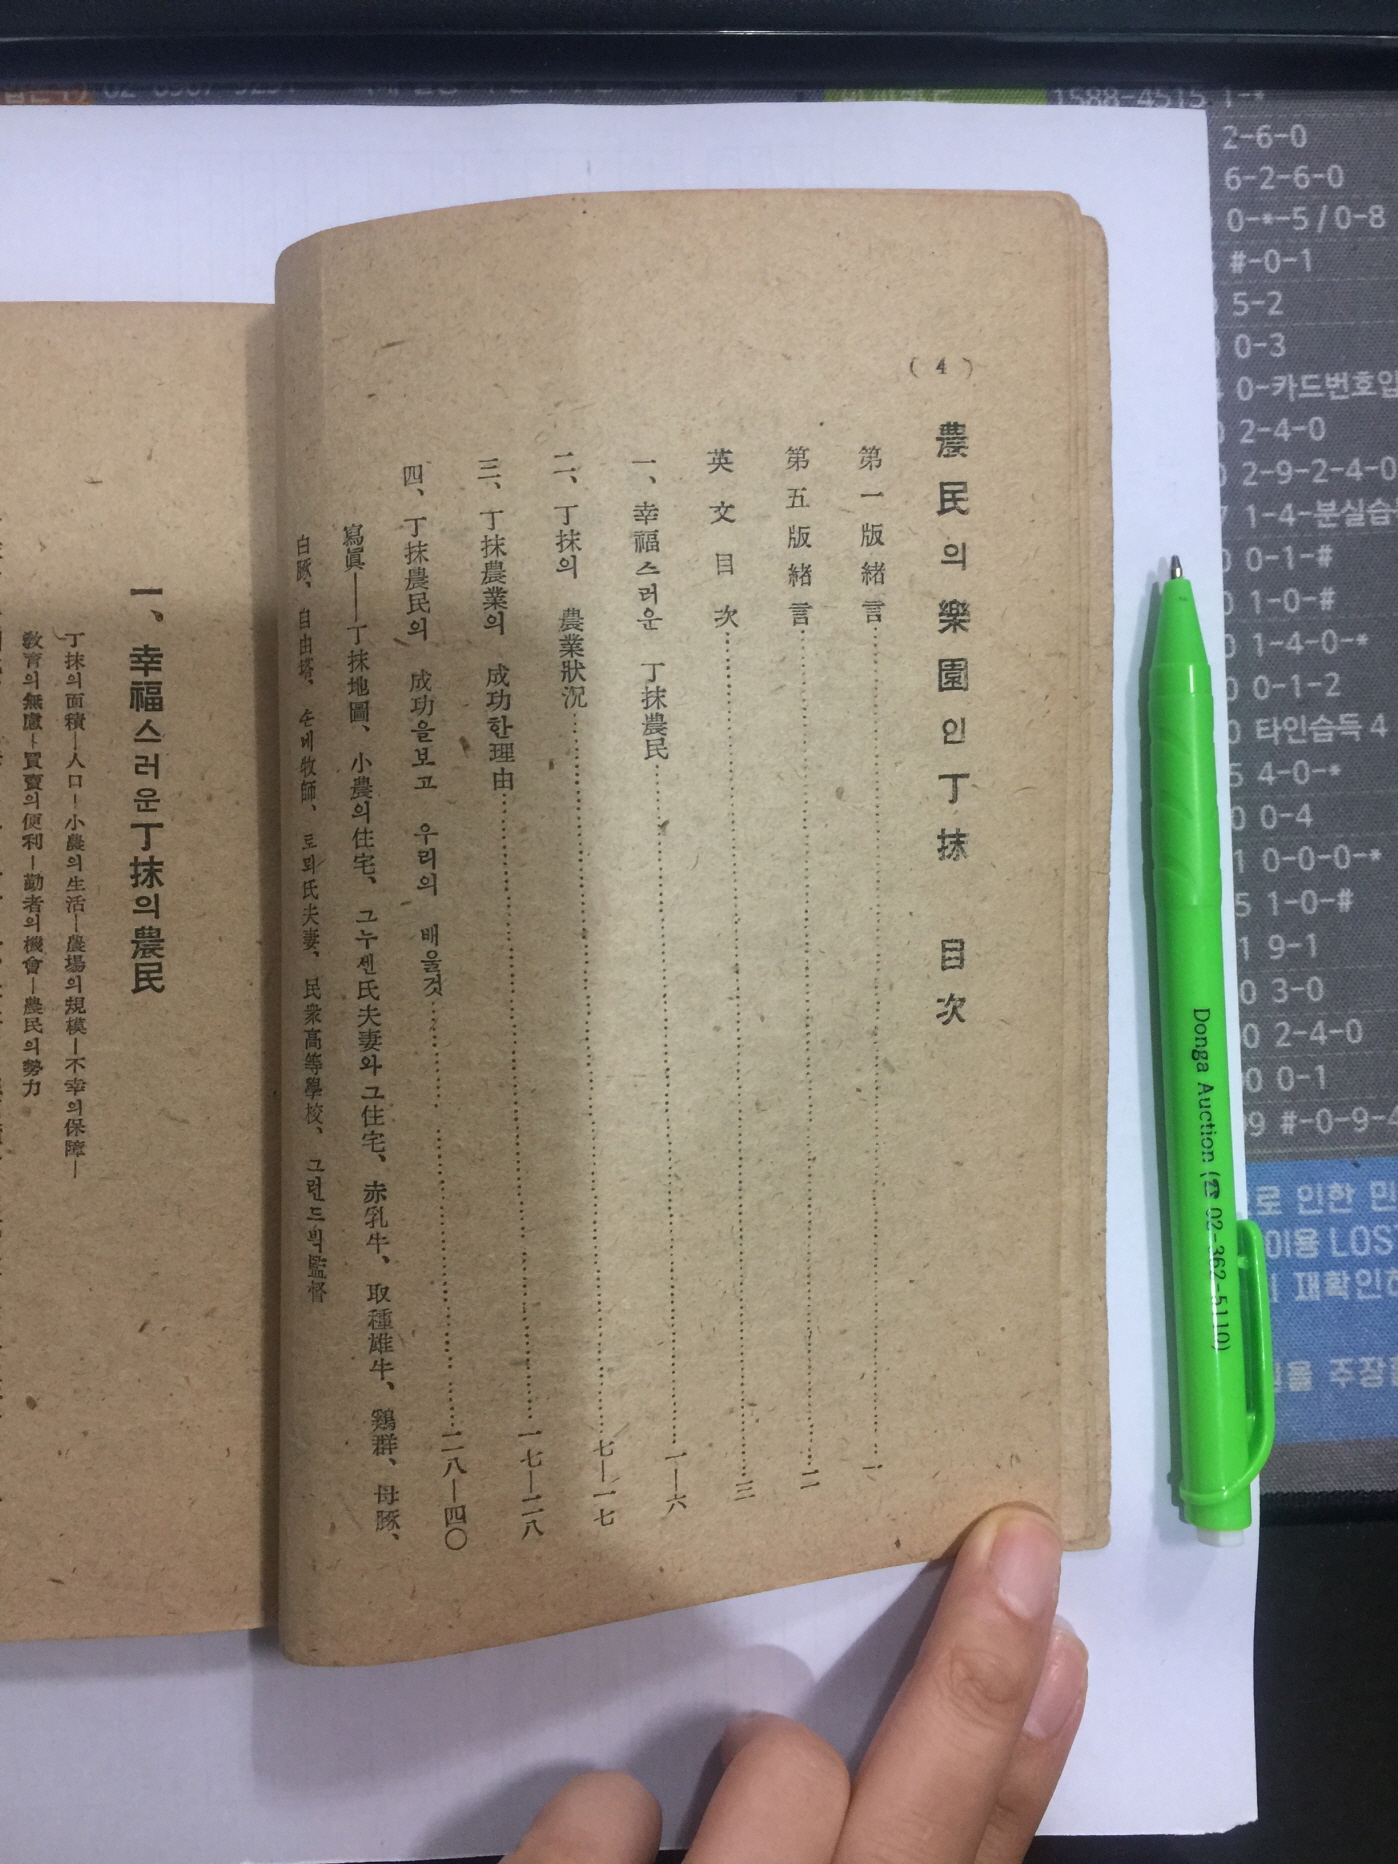 (4)
農民의樂園인丁抹 目次
第一版緖言 一
第五版緖言 二
英文目次 三
一、幸福스러운 丁抹農民 一—六
二、丁抹의 農業狀况 七—一七
三、丁抹農業의 成功한理由 一七—二八
四、丁抹農民의 成功을보고 우리의 배울것 二八—四〇
寫眞——丁抹地圖、小農의住宅、그누센氏夫妻와그住宅、赤乳牛、取種雄牛、鷄群、母豚、
白豚、自由塔、손네牧師、토퇴氏夫妻、民衆高等學校、그런드빅監督
一、幸福스러운丁抹의農民
丁抹의面積—人口—小農의生活—農場의規模—不幸의保障—
敎育의無慮—買賣의便利—勤者의機會—農民의勢力
Donga Auction (☎ 02-362-5110)
1588-4515 1-*
2-6-0
6-2-6-0
0-*-5/0-8
#-0-1
5-2
0-3
0-카드번호입
2-4-0
2-9-2-4-0
1-4-분실습
0-1-#
1-0-#
1-4-0-*
0-1-2
타인습득 4
4-0-*
0-4
0-0-0-*
1-0-#
9-1
3-0
2-4-0
0-1
#-0-9-4
로 인한 민
이용 LOS
재확인
주장